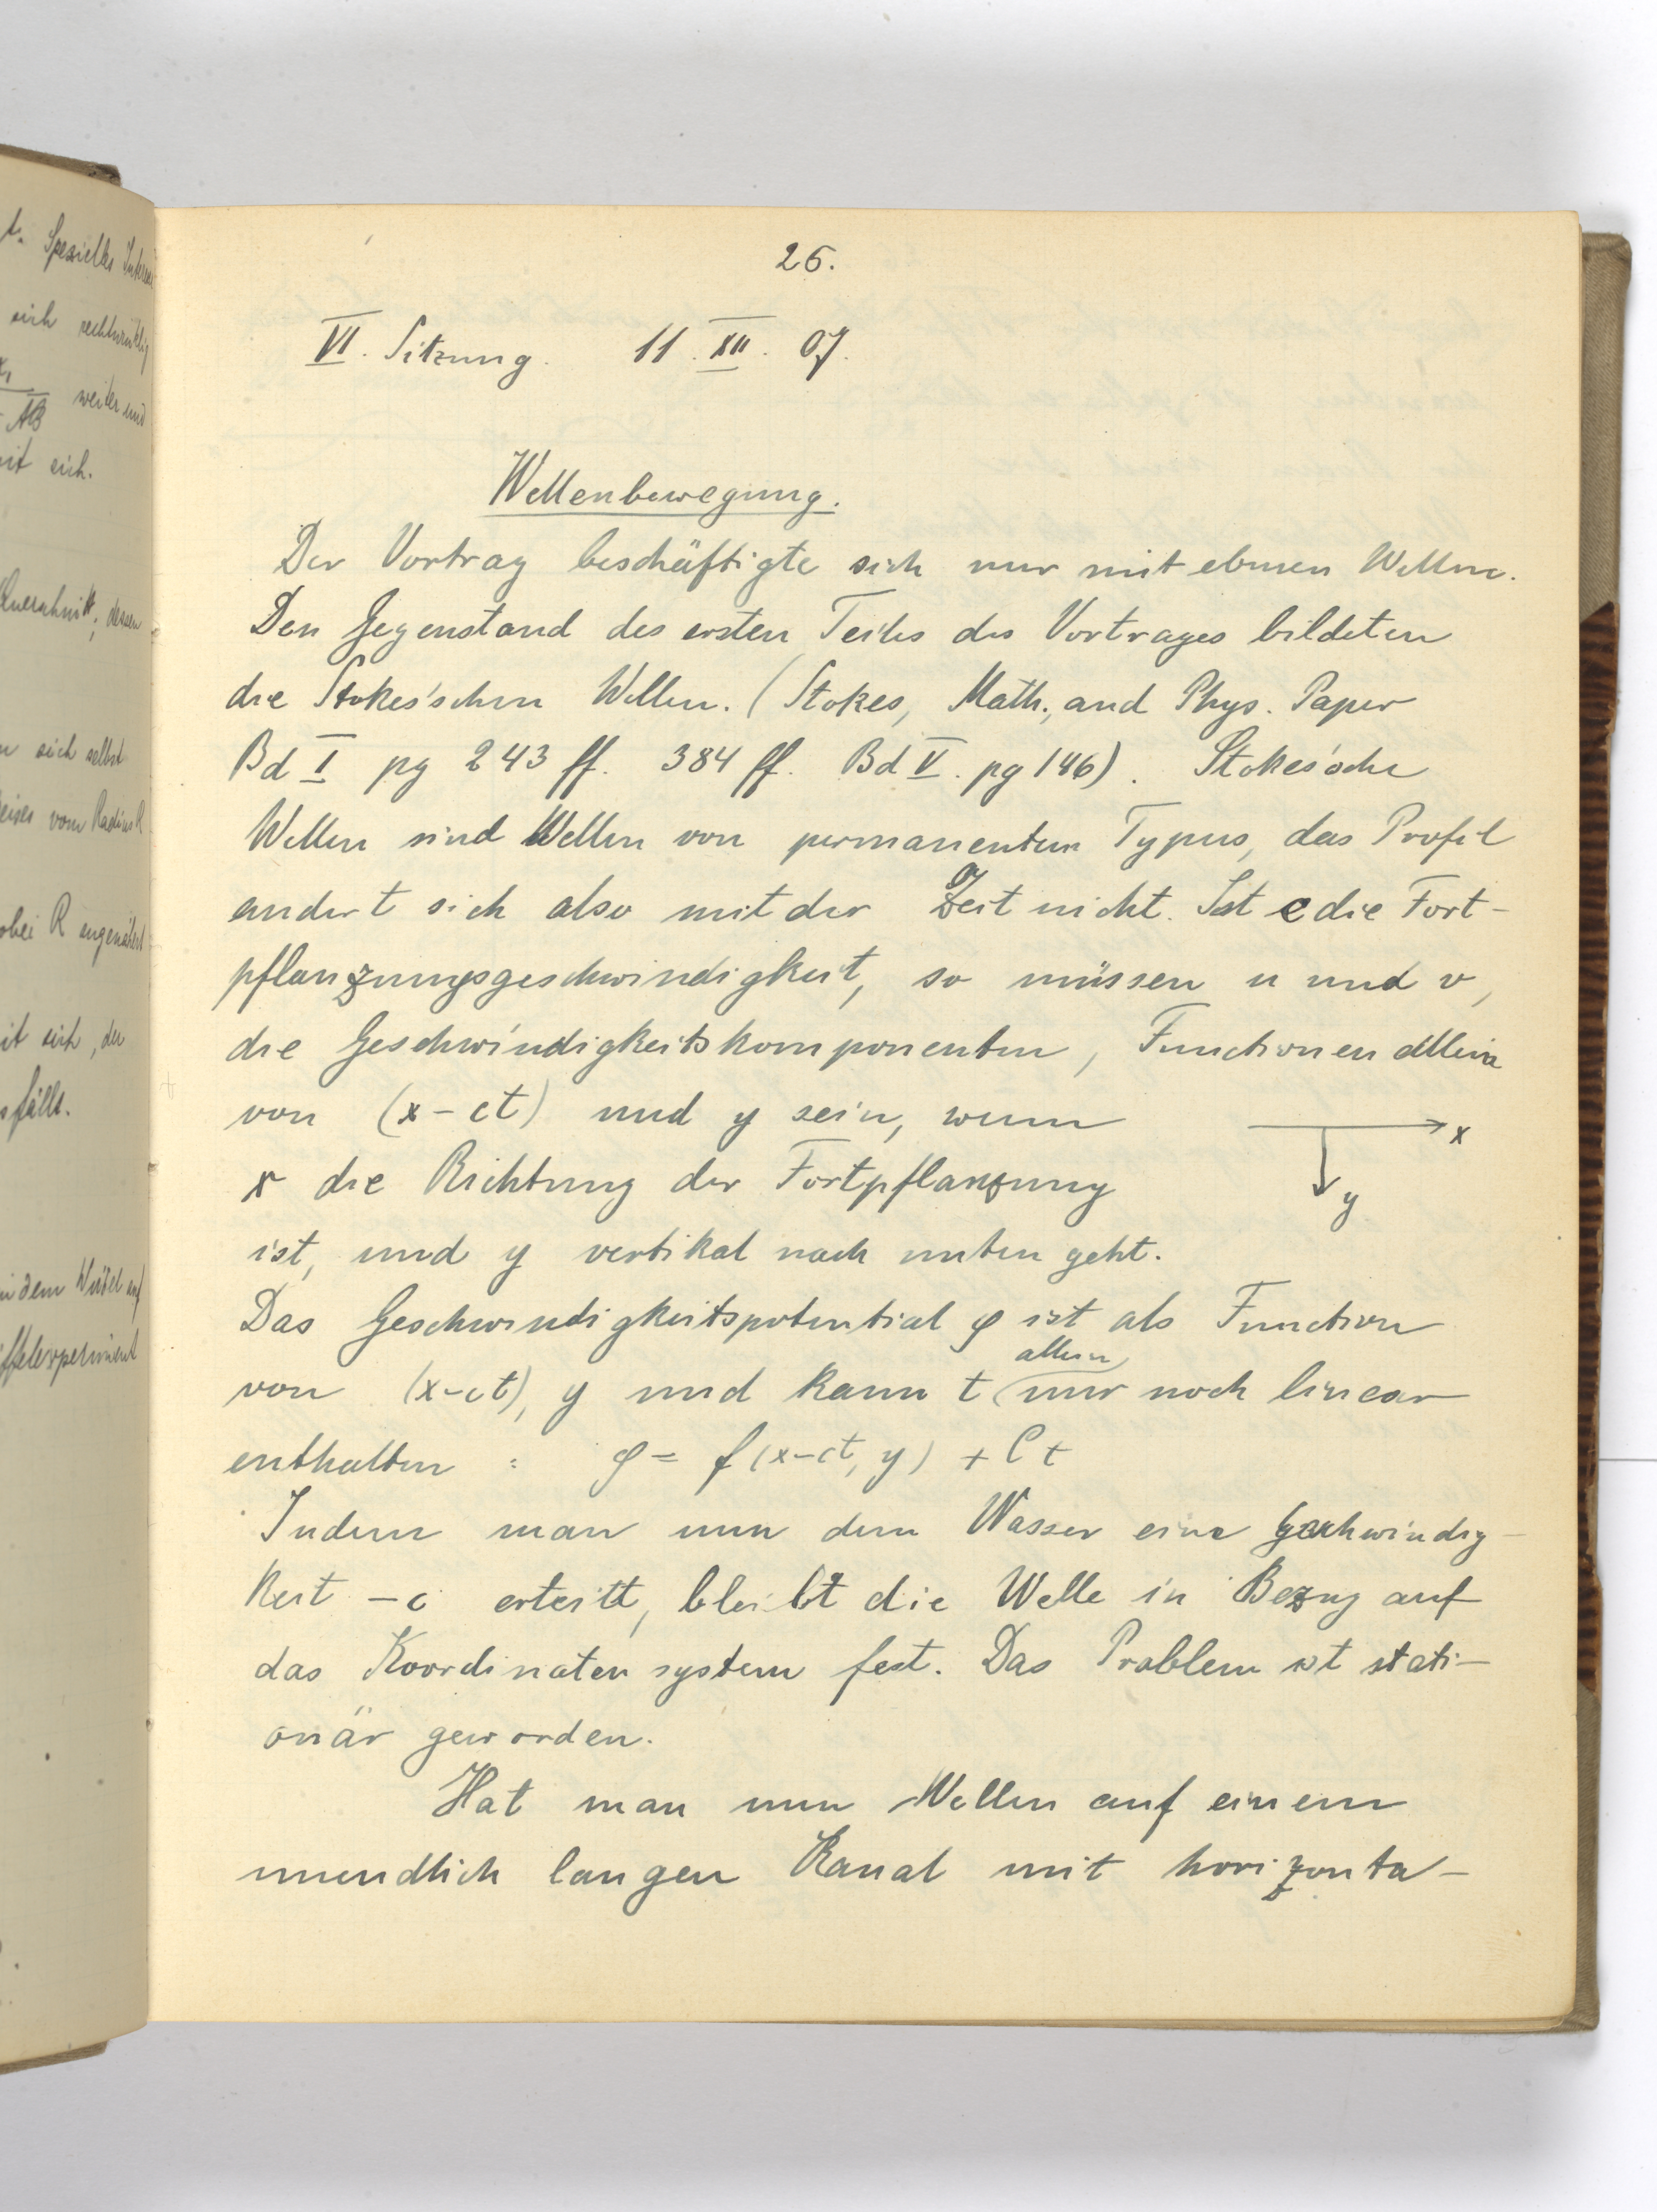 t. Spezielles
sich rechtwinklig
weiter und
AB
mit sich.
Querschnitt; dessen
sich selbst
vom Radius R
wobei R
mit sich, der
fälle.
in dem Wirbel auf
26.
VI. Sitzung. 11. XII. 07.
Wellenbewegung.
Der Vortrag beschäftigte sich nur mit ebenen Wellen.
Den Gegenstand des ersten Teiles des Vortrages bildeten
die Stokes'schen Wellen. (Stokes, Math. and Phys. Paper
Bd I pg 243 ff. 384 ff. Bd V. pg 146). Stokes'sche
Wellen sind Wellen von permanentem Typus, das Profil
andert sich also mit der Zeit nicht. Ist c die Fort-
pflanzungsgeschwindigkeit, so müssen u und v,
die Geschwindigkeitskomponenten, Functionen allein
von (x-ct) und y sein, wenn
x
x die Richtung der Fortpflanzung
y
ist, und y vertikal nach unten geht.
Das Geschwindigkeitspotential φ ist als Function
allein
von (x-ct), y und kann t nur noch linear
enthalten : φ = f(x-ct, y) + Ct
Indem man nun dem Wasser eine Geschwindig-
keit -c erteilt, bleibt die Welle in Bezug auf
das Koordinatensystem fest. Das Problem ist stati-
onär geworden.
Hat man nun Wellen auf einem
unendlich langen Kanal mit horizonta-